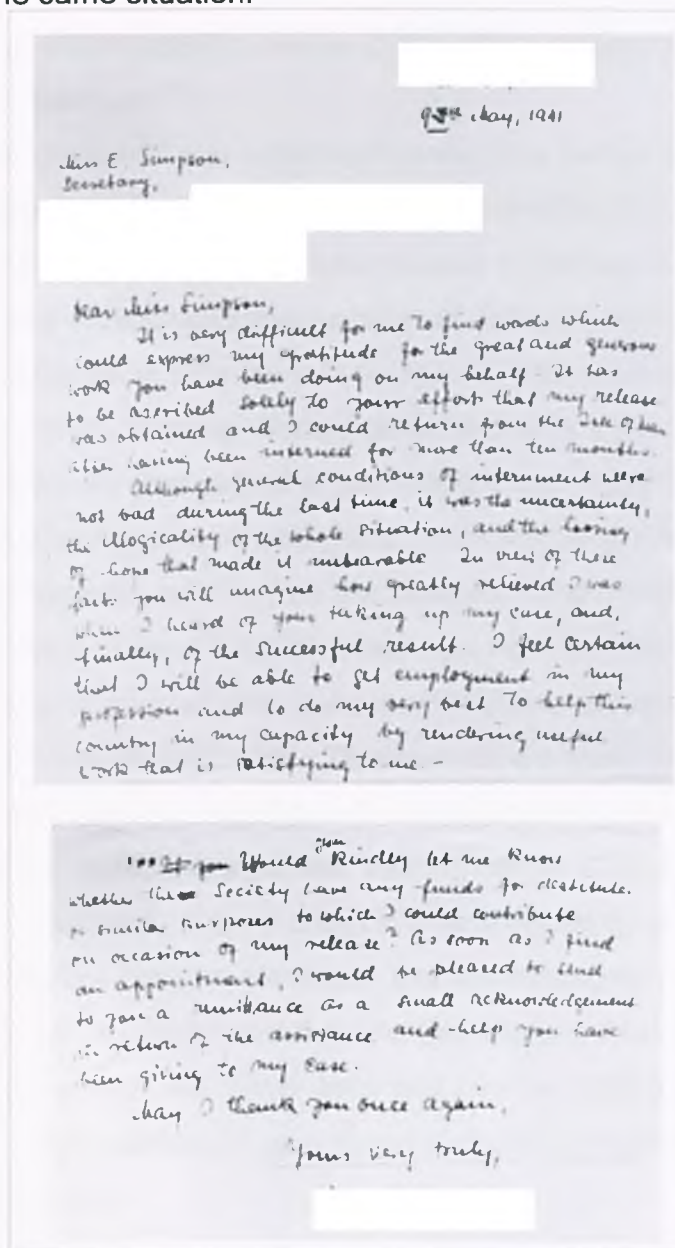 same situation.
May, 1941
Miss E Simpson,
Secretary,
Dear Miss Simpson,
It is very difficult for me to find words which
could express my gratitude for the great and generous
work you have been doing on my behalf. It has
to be ascribed solely to your efforts that my release
was obtained and I could return from the Isle of Man
after having been interned for more than ten months.
Although general conditions of internment were
not bad during the last time, it was the uncertainty,
the illogicality of the whole situation, and the loosing
of hope that made it unbearable. In view of these
facts you will imagine how greatly relieved I was
when I heard of your taking up my case, and,
finally, of the successful result. I feel certain
that I will be able to get employment in my
profession and to do my very best to help this
country in my capacity by rendering useful
work that is satisfying to me -
Would you kindly let me know
whether the Society have any funds for destitute
or similar purposes to which I could contribute
on occasion of my release? As soon as I find
an appointment, I would be pleased to send
to you a remittance as a small acknowledgement
in return of the assistance and help you have
been giving to my case.
May I thank you once again,
Yours very truly,